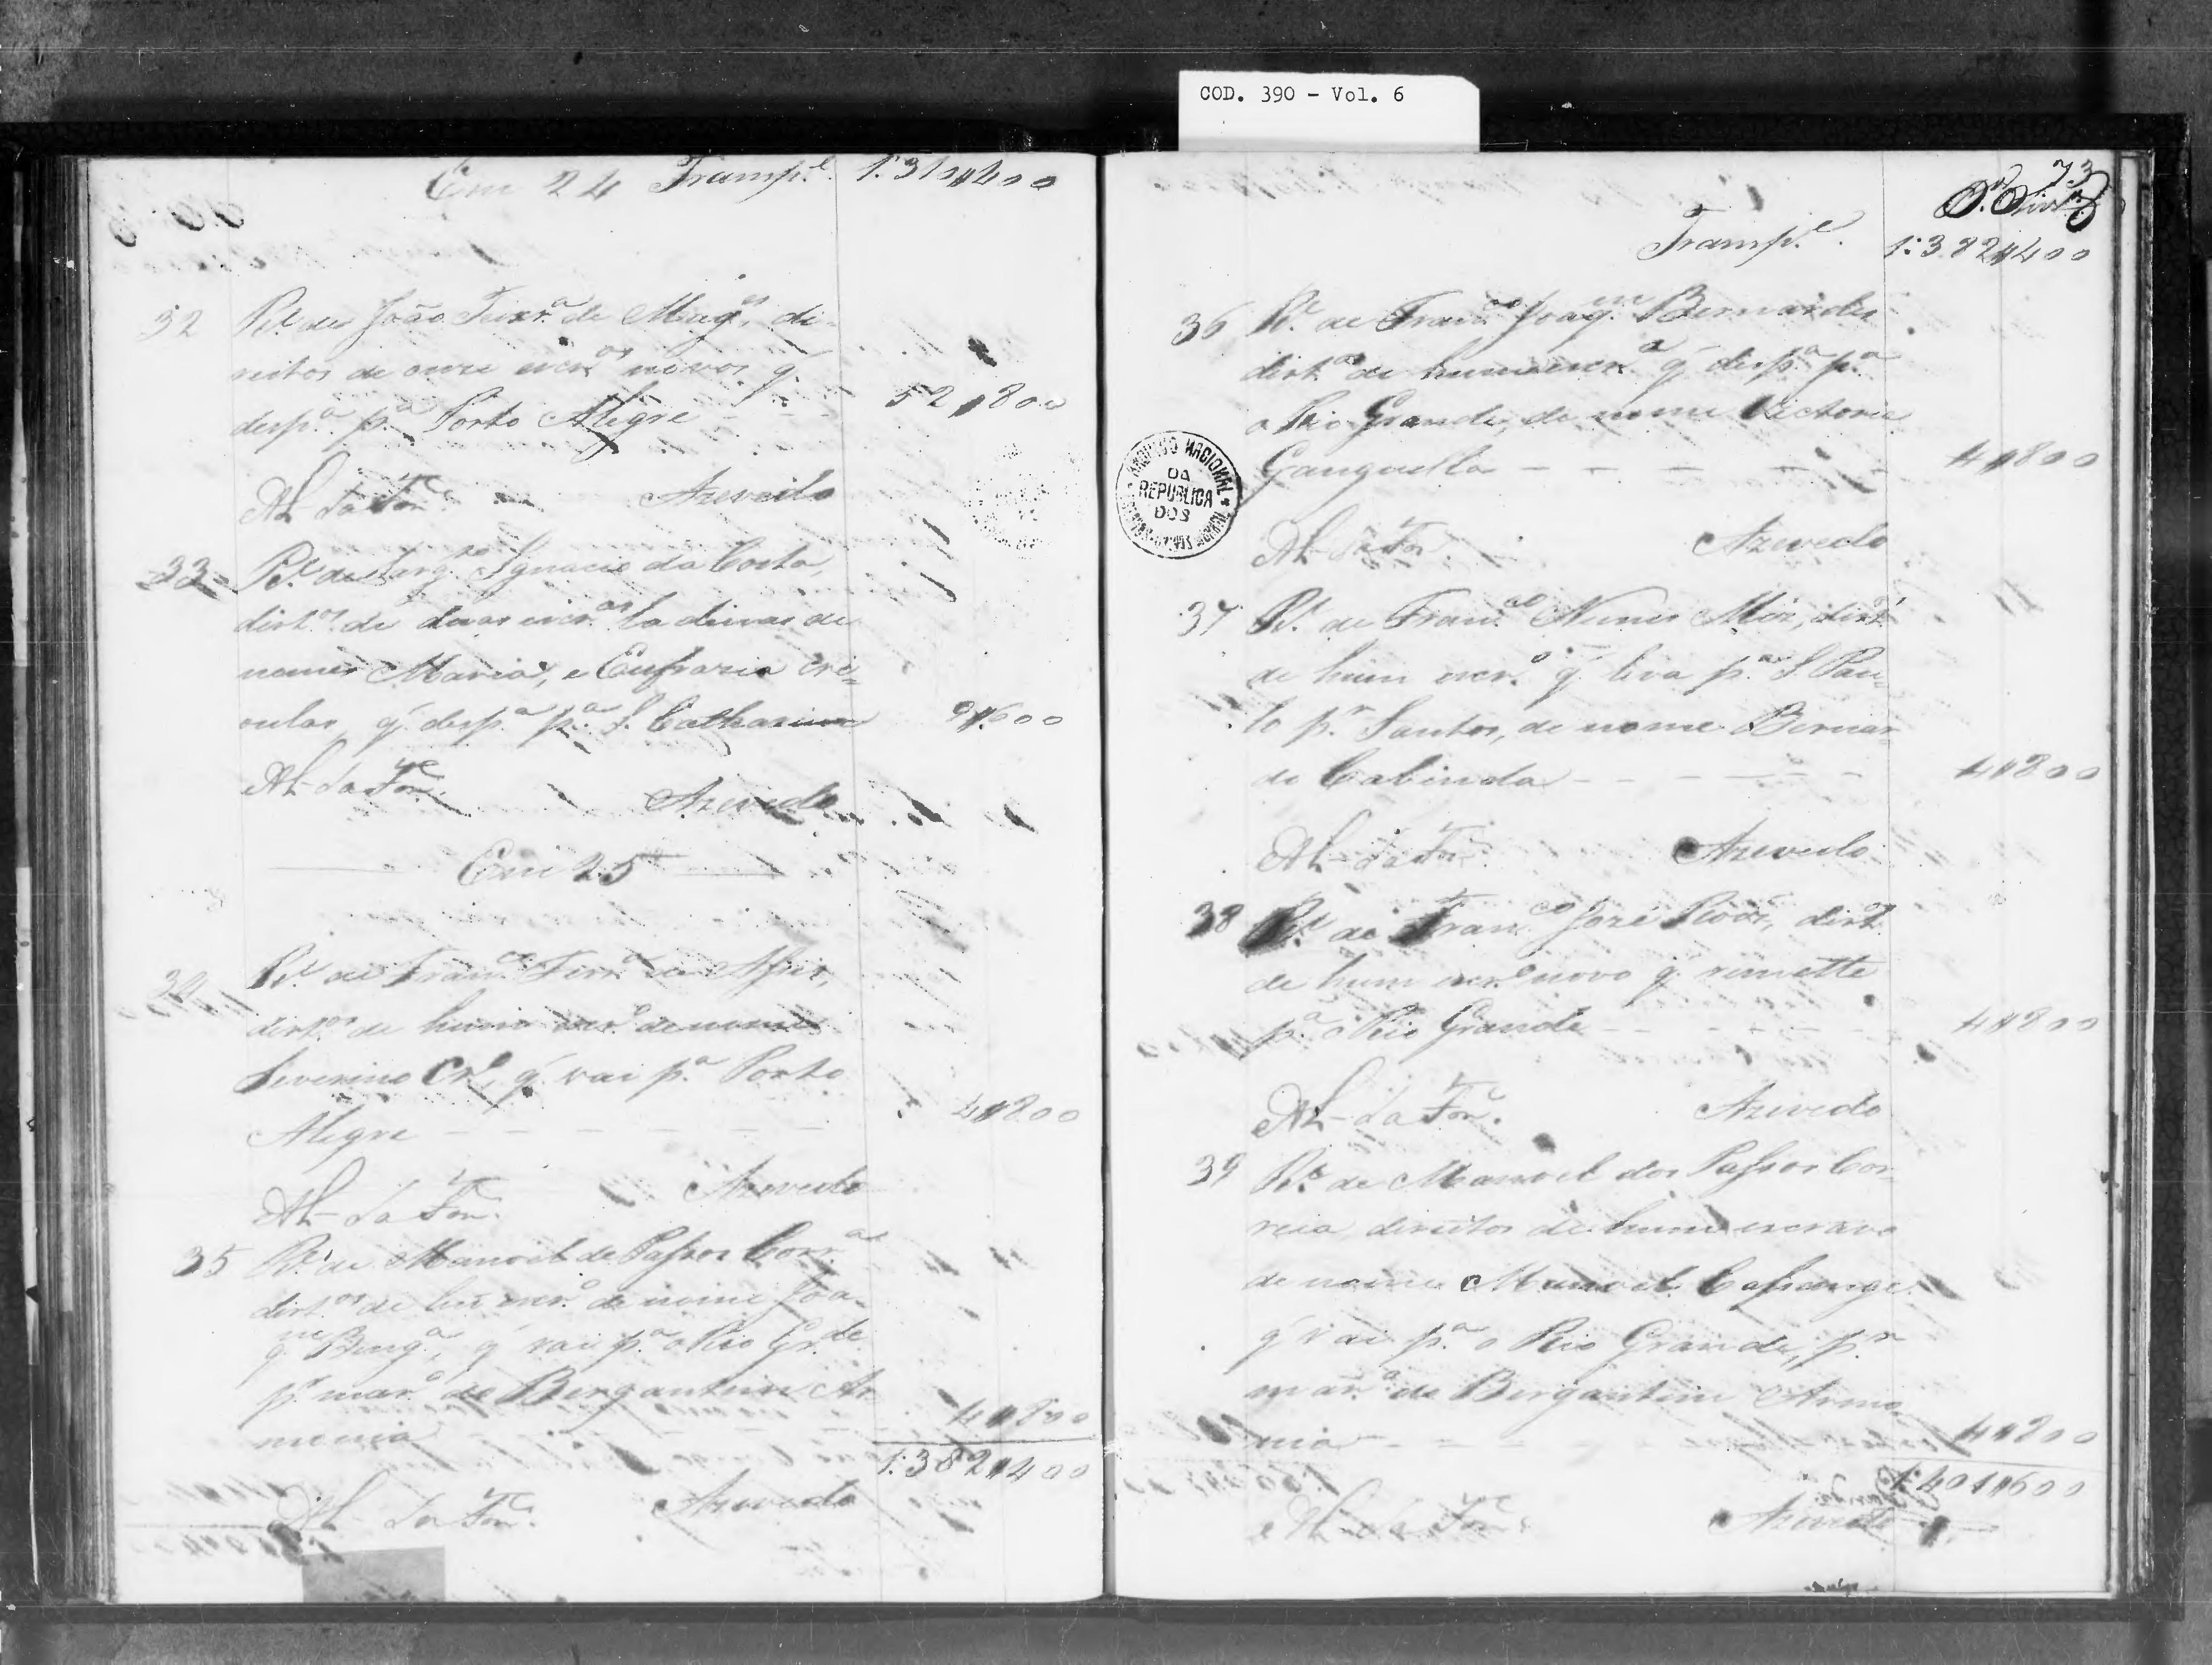 COD. 390 - Vol. 6
Em 24 Transp.e 1:310$400
32 R.e de João Teix.ra de Mag.es, di-
reitos de onze escr.os novos q'
desp.a p.a Porto Alegre - - - 52$800
Azevedo
33 R.e de Serg.o Ignacio da Costa,
dirt.os de duas escr.as ladinas de
nomes Maria, e Eufrazia cre=
oulas, q' desp.a p.a S. Catharina 9$600
Azevedo
Em 25
34 R.e de Fran.co Ferr.a de
dirt.os de hum escr.o de nome
Severino Cr.o, q' vai p.a Porto
Alegre - - - - - - 4$800
Azevedo
35 R.e de Manoel de Passos Corr.a
dirt.os de hũ escr.o de nome Joa-
q.m Beng.a, q' vai p.a o Rio Gr.de
p.r mar.o do Bergantim Ar
monia 4$800
1:382$400
Azevedo
73
Transp.e 1:382$400
36 R.e de Fran.co Joaq.m Bernardes
dirt.os de huma escr.a q' desp.a p.a
o Rio Grande, de nome Victoria
Ganguella - - - - - 4$800
Azevedo
ARQUIVO NACIONAL
DA
REPUBLICA
DOS
37 R.e de Fran.co Nunes Miz, dirt.os
de hum escr.o q' leva p.a S. Pau-
lo p.r Santos, de nome Bernar-
do Cabinda - - - - - - 4$800
Azevedo
38 R.e de Fran.co José dirt.os
de hum escr.o novo q' remette
p.a o Rio Grande - - - - - 4$800
Azevedo
39 R.e de Manoel dos Passos Cor-
reia direitos de hum escravo
de nome Manoel Cassange
q' vai p.a o Rio Grande, p.r
mar.o do Bergantim Armo-
nia - - - - 4$800
1:401$600
Azevedo